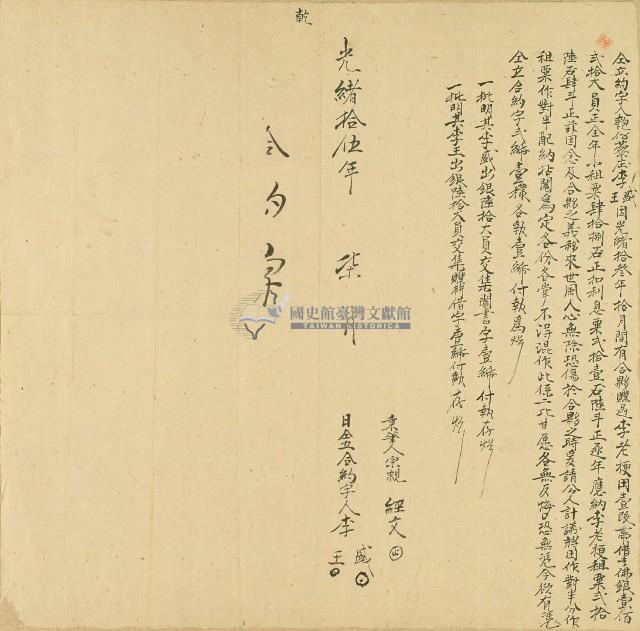 仝立約字人鮑伯蓁庄李盛王因光緒拾叁年拾月間有合夥贌過李老梗田壹段帶借去佛銀壹佰
弍拾大員正全年小租粟肆拾捌石正扣利息粟弍拾壹石陸斗正逐年應納李老梗租粟弍拾
陸石肆斗正茲因念及合夥之義秪來世風人心無除恐傷於合夥之時爰請公人計議將田作對半分作
租粟作對半配納拈鬮為定各份各掌不得混作此係二比甘愿各無反悔口恐無憑今欲有憑
仝立合約字弍紙壹樣各執壹紙付執為炤
一批明其李盛出銀陸拾大員交集鬮書字壹紙付執存炤
一批明其李王出銀陸拾大員交集贌耕借字壹紙付執存炤
秉筆人宗親 經文
日仝立合約字人李 盛 王
光緒拾伍年 柒 月
乾
國史館臺灣文獻館
TAIWAN HISTORICA